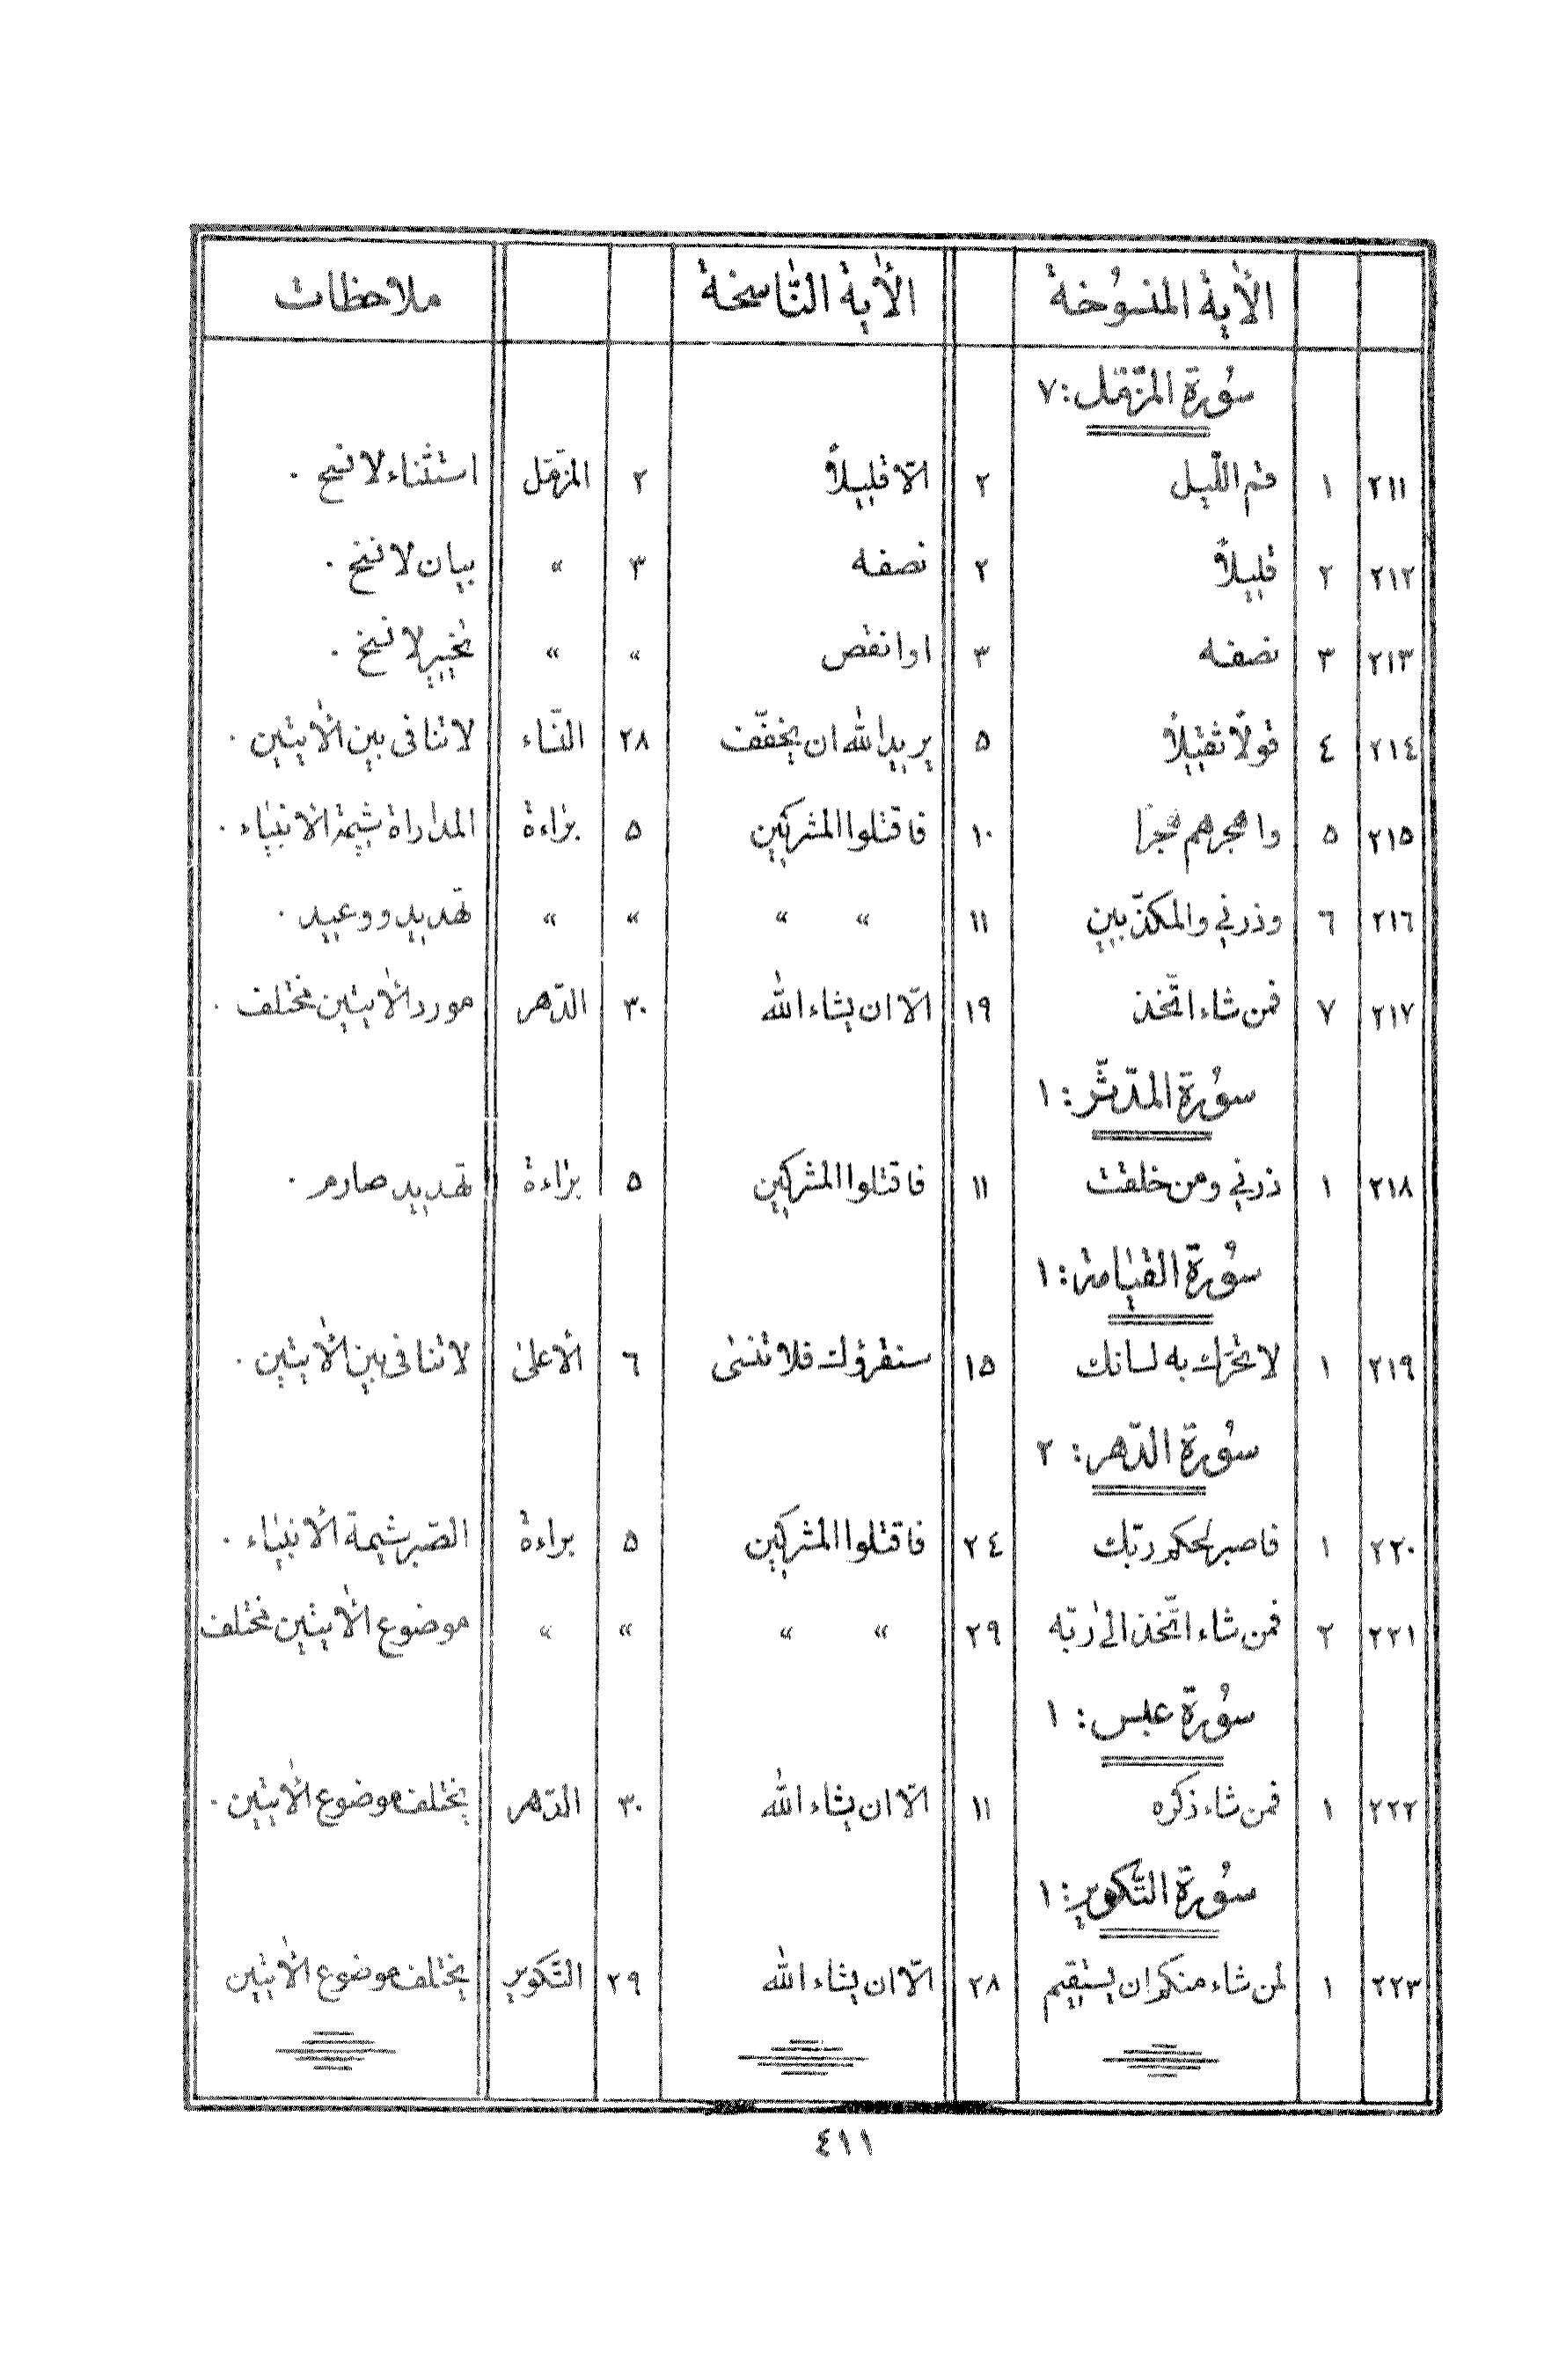 الآية المنسوخة الآية الناسخة ملاحظات
سورة المزّمّل: ٧
٢١١ ١ قم اللّيل ٢ الّا قليلاً ٢ المزّمّل استثناء لا نسخ .
٢١٢ ٢ قليلاً ٢ نصفه ٣ " بيان لا نسخ .
٢١٣ ٣ نصفه ٣ او انقص " " تخيير لا نسخ .
٢١٤ ٤ قولاً ثقيلاً ٥ يريد الله ان يخفّف ٢٨ النّساء لا تنافى بين الآيتين .
٢١٥ ٥ واهجرهم هجراً ١٠ فاقتلوا المشركين ٥ براءة المداراة شيمة الانبياء .
٢١٦ ٦ وذرني والمكذّبين ١١ " " " " تهديد ووعيد .
٢١٧ ٧ فمن شاء اتّخذ ١٩ الّا ان يشاء الله ٣٠ الدّهر مورد الآيتين مختلف .
سورة المدّثّر: ١
٢١٨ ١ ذرني ومن خلقت ١١ فاقتلوا المشركين ٥ براءة تهديد صارم .
سورة القيامة: ١
٢١٩ ١ لا تحرّك به لسانك ١٥ سنقرؤك فلا تنسى ٦ الأعلى لا تنافى بين الآيتين .
سورة الدّهر: ٢
٢٢٠ ١ فاصبر لحكم ربّك ٢٤ فاقتلوا المشركين ٥ براءة الصّبر شيمة الأنبياء .
٢٢١ ٢ فمن شاء اتّخذ الى ربّه ٢٩ " " " " موضوع الآيتين مختلف
سورة عبس: ١
٢٢٢ ١ فمن شاء ذكره ١١ الّا ان يشاء الله ٣٠ الدّهر يختلف موضوع الآيتين .
سورة التّكوير: ١
٢٢٣ ١ لمن شاء منكم ان يستقيم ٢٨ الّا ان يشاء الله ٢٩ التّكوير يختلف موضوع الآيتين
٤١١